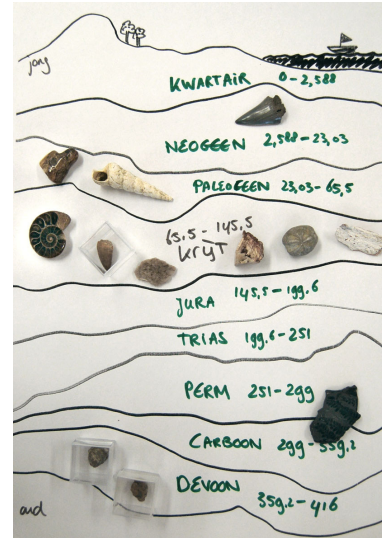 jong
KWARTAIR 0-2,588
NEOGEEN 2,588-23,03
PALEOGEEN 23,03-65,5
65,5-145,5
KRIJT
JURA 145,5-199.6
TRIAS 199,6-251
PERM 251-299
CARBOON 299-359,2
DEVOON 359,2-416
oud